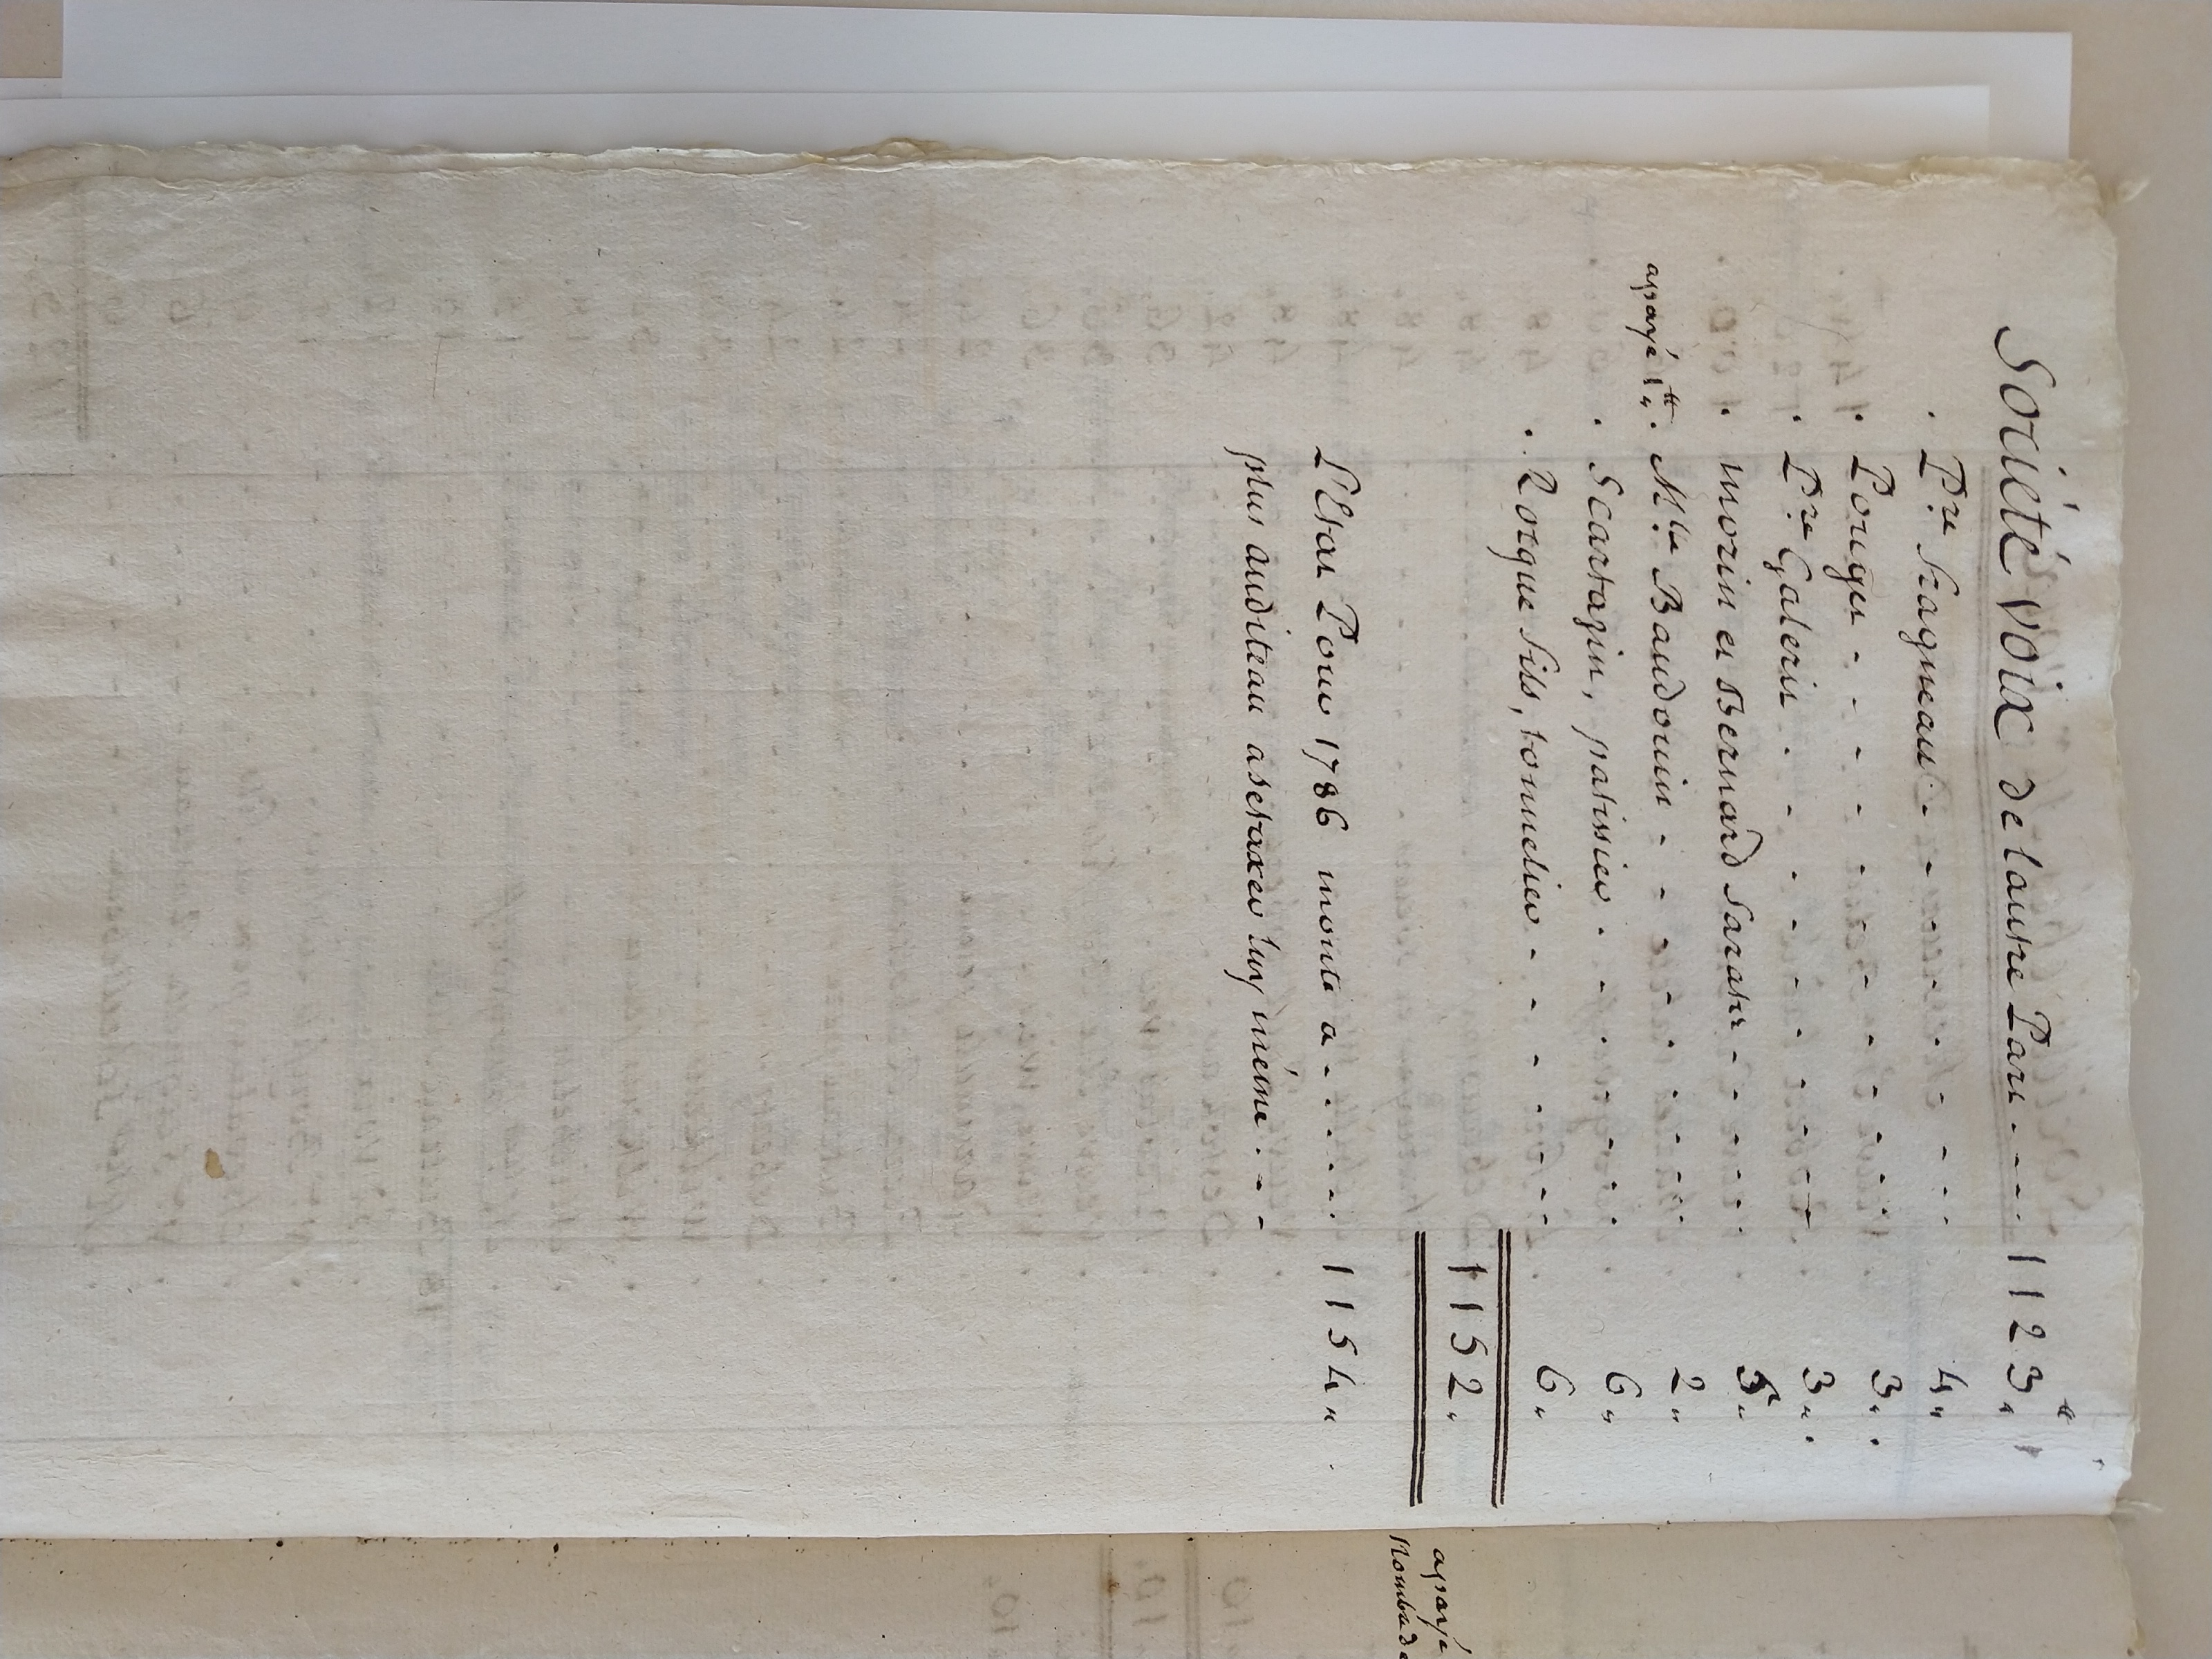 Société Voix de l'autre Part - - - - 1123 ₶ "
. Pre Fragneau - - - - - - - 4 "
. Pouget - - - - - - - - 3 " .
. Pre Galerin - - - - - - - - 3 " .
. morin et Bernard Saratte - - - - - 5 "
apayé 1 ₶ " . Mlle Baudouin - - - - - - - 2 "
. Scartazin, patissier - - - - - - 6 "
. Rocque fils, tonnelier - - - - - - 6 "
1152 "
L'Etat Pour 1786 monte a - - - - - 1154 "
plus auditeau a se taxer luy même - - -
apayé